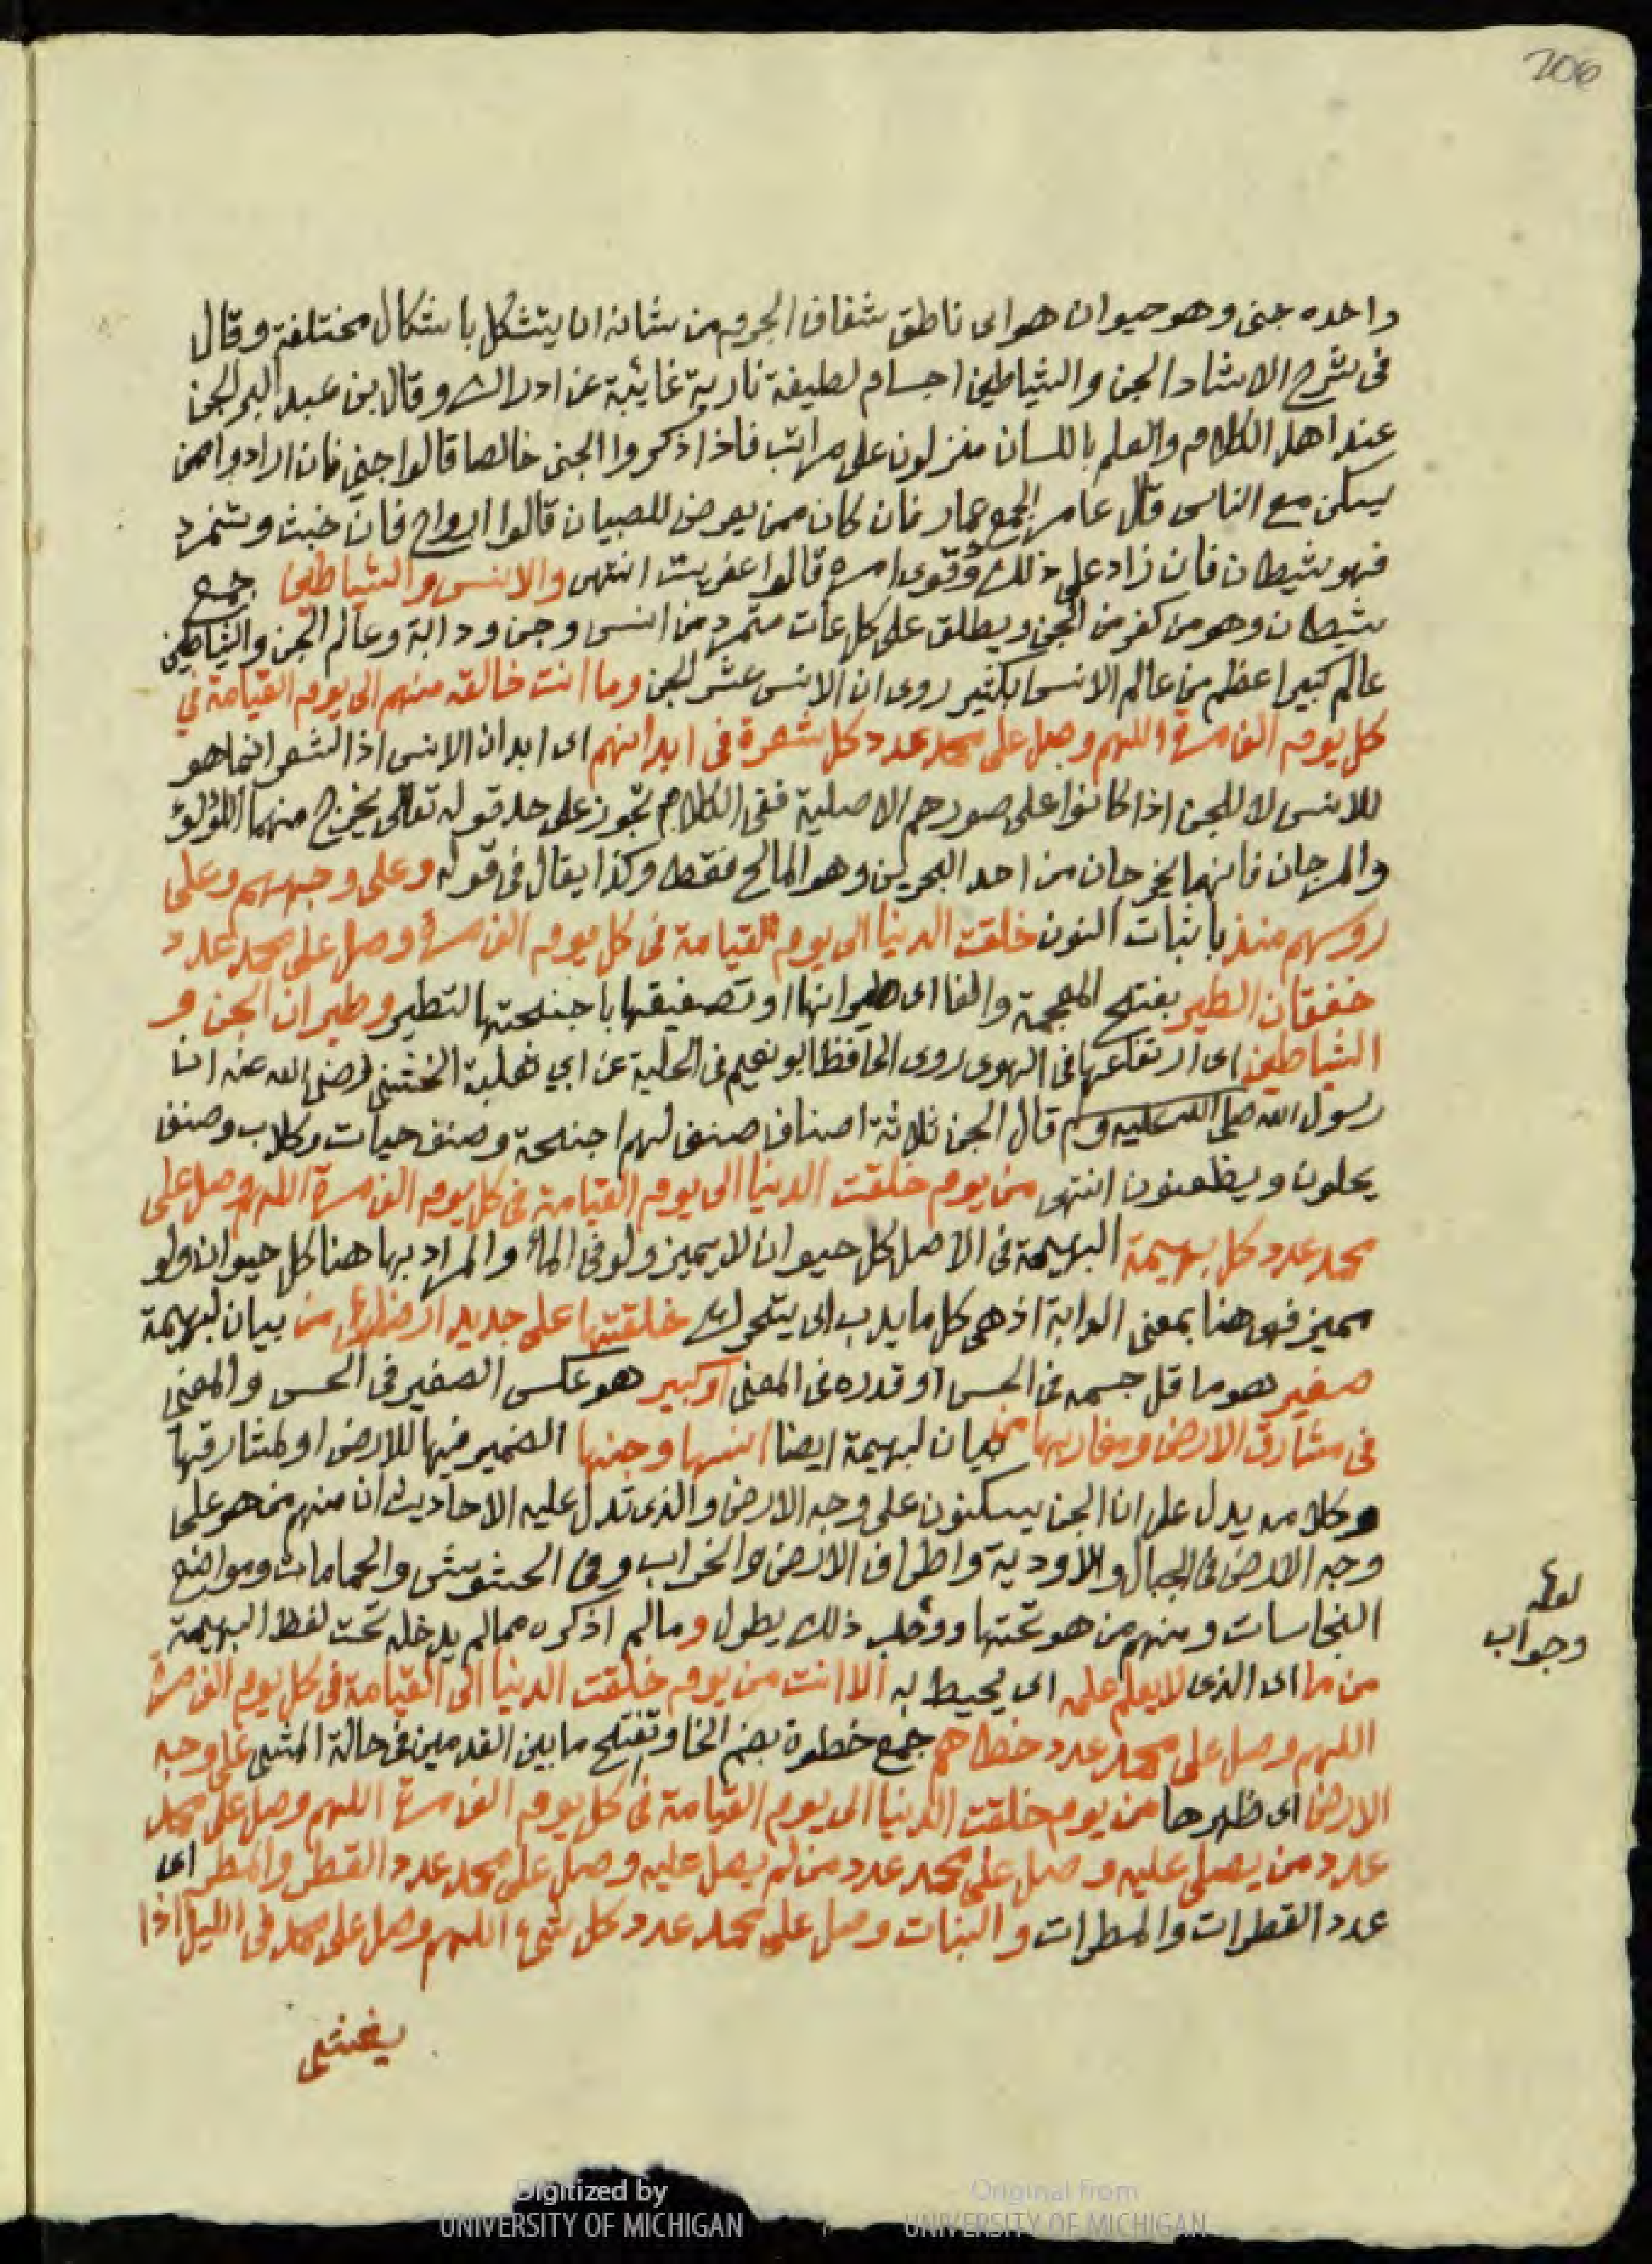 206
واحده جنى وهو حيوان هوائى ناطق شفاف الجرم من شانه ان يتشكل باشكال مختلفة وقال
فى شرح الارشاد الجن والشياطين اجسام لطيفة نارية غائبة عن ادراك وقال بن عبد البر الجن
عند اهل الكلام والعلم باللسان منزلون على مراتب فاذا ذكروا الجن خالصا قالوا جنى فان ارادوا من
يسكن مع الناس قال عامر الجمع عمار فان كان ممن يعرض للصبيان قالوا ارواح فان خبث وتمرد
فهو شيطان فان زاد على ذلك وقوى امره قالوا عفريت انتهى والانس والشياطين جمع
شيطان وهو من كفر من الجن ويطلق على كل عات متمرد من انس وجن ودابة وعالم الجن والشياطين
عالم كبير اعظم من عالم الانس بكثير روى ان الانس عشر الجن وما انت خالقه منهم الى يوم القيامة فى
كل يوم الف مرة اللهم وصل على محمد عدد كل شعرة فى ابدانهم اى ابدان الانس اذ الشعر انما هو
للانس لا للجن اذا كانوا على صورهم الاصلية ففى الكلام تجوز على حد قوله تعالى يخرج منهما اللؤلؤ
والمرجان فانهما يخرجان من احد البحرين وهو المالح فقط وكذا يقال فى قوله وعلى وجههم وعلى
روسهم منذ باثبات النون خلقت الدنيا الى يوم القيامة فى كل يوم الف مرة وصل على محمد عدد
خفقان الطير بفتح المعجمة والفا اى طيرانها او تصفيقها باجنحتها لتطير وطيران الجن و
الشياطين اى ارتفاعها فى الهوى روى الحافظ ابو نعيم فى الحلية عن ابي ثعلبة الخشنى رضى الله عنه ان
رسول الله صلى الله عليه وسلم قال الجن ثلاثة اصناف صنف لهم اجنحة وصنف حيات وكلاب وصنف
يحلون ويظعنون انتهى من يوم خلقت الدنيا الى يوم القيامة فى كل يوم الف مرة اللهم وصل على
محمد عدد كل بهيمة البهيمة فى الاصل كل حيوان لا يميز ولو فى الماء والمراد بها هنا كل حيوان ولو
مميز فهى هنا بمعنى الدابة اذ هى كل ما يدب اى يتحرك خلقتها على جديد ارضك من بيان لبهيمة
صغير هو ما قل جسمه فى الحس او قدره فى المعنى او كبير هو عكس الصغير فى الحس والمعنى
فى مشارق الارض ومغاربها من بيان لبهيمة ايضا انسها وجنها الضمير فيها للارض او لمشارقها
وكلامه يدل على ان الجن يسكنون على وجه الارض والذى تدل عليه الاحاديث ان منهم من هو على
وجه الارض فى الجبال والاودية واطراف الارض والخراب وفى الحشوش والحمامات ومواضع
النجاسات ومنهم من هو تحتها وجلب ذلك يطول ومالم اذكره مما لم يدخل تحت لفظ البهيمة
من ما اى الذى لا يعلم علمه اى يحيط به الا انت من يوم خلقت الدنيا الى القيامة فى كل يوم الف مرة
اللهم وصل على محمد عدد خطاهم جمع خطوة بضم الخا وتفتح ما بين القدمين فى حالة المشى على وجه
الارض اى ظهرها من يوم خلقت الدنيا الى يوم القيامة فى كل يوم الف مرة اللهم وصل على محمد
عدد من يصلى عليه وصل على محمد عدد من لم يصل عليه وصل على محمد عدد القطر والمطر اى
عدد القطرات والمطرات والنبات وصل على محمد عدد كل شىء اللهم وصل على محمد فى الليل اذا
يغشى
وجواب
Digitized by
UNIVERSITY OF MICHIGAN
Original from
UNIVERSITY OF MICHIGAN